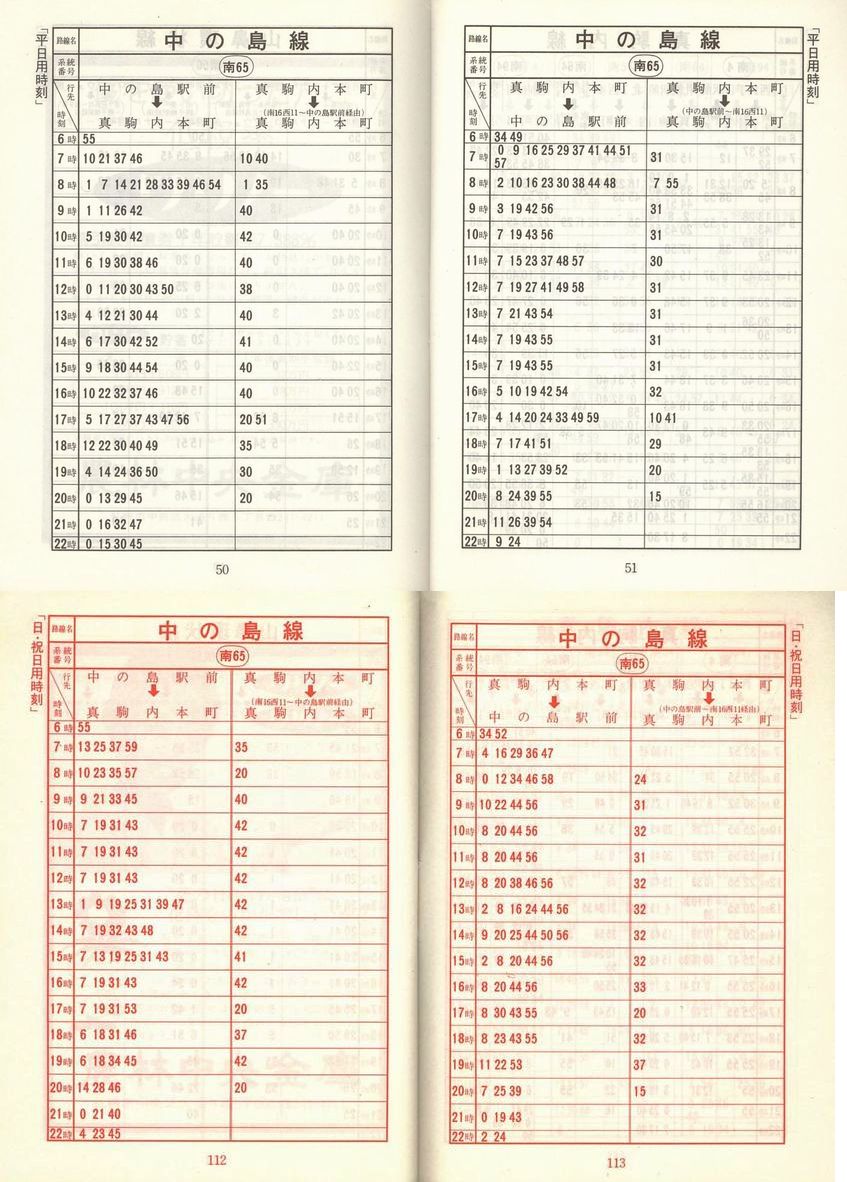 「平日用時刻」
路線名 中の島線
系統番号 南65
行先 時刻 中の島駅前 ⬇ 真駒内本町 真駒内本町 ⬇ (南16西11～中の島駅前経由) 真駒内本町
6時 55
7時 10 21 37 46 10 40
8時 1 7 14 21 28 33 39 46 54 1 35
9時 1 11 26 42 40
10時 5 19 30 42 42
11時 6 19 30 38 46 40
12時 0 11 20 30 43 50 38
13時 4 12 21 30 44 40
14時 6 17 30 42 52 41
15時 9 18 30 44 54 40
16時 10 22 32 37 46 40
17時 5 17 27 37 43 47 56 20 51
18時 12 22 30 40 49 35
19時 4 14 24 36 50 30
20時 0 13 29 45 20
21時 0 16 32 47
22時 0 15 30 45
50
「平日用時刻」
路線名 中の島線
系統番号 南65
行先 時刻 真駒内本町 ⬇ 中の島駅前 真駒内本町 ⬇ (中の島駅前～南16西11) 真駒内本町
6時 34 49
7時 0 9 16 25 29 37 41 44 51 31
57
8時 2 10 16 23 30 38 44 48 7 55
9時 3 19 42 56 31
10時 7 19 43 56 31
11時 7 15 23 37 48 57 30
12時 7 19 27 41 49 58 31
13時 7 21 43 54 31
14時 7 19 43 55 31
15時 7 19 43 55 31
16時 5 10 19 42 54 32
17時 4 14 20 24 33 49 59 10 41
18時 7 17 41 51 29
19時 1 13 27 39 52 20
20時 8 24 39 55 15
21時 11 26 39 54
22時 9 24
51
「日・祝日用時刻」
路線名 中の島線
系統番号 南65
行先 時刻 中の島駅前 ⬇ 真駒内本町 真駒内本町 ⬇ (南16西11～中の島駅前経由) 真駒内本町
6時 55
7時 13 25 37 59 35
8時 10 23 35 57 20
9時 9 21 33 45 40
10時 7 19 31 43 42
11時 7 19 31 43 42
12時 7 19 31 43 42
13時 1 9 19 25 31 39 47 42
14時 7 19 32 43 48 42
15時 7 13 19 25 31 43 41
16時 7 19 31 43 42
17時 7 19 31 53 20
18時 6 18 31 46 37
19時 6 18 34 45 42
20時 14 28 46 20
21時 0 21 40
22時 4 23 45
112
「日・祝日用時刻」
路線名 中の島線
系統番号 南65
行先 時刻 真駒内本町 ⬇ 中の島駅前 真駒内本町 ⬇ (中の島駅前～南16西11経由) 真駒内本町
6時 34 52
7時 4 16 29 36 47
8時 0 12 34 46 58 24
9時 10 22 44 56 31
10時 8 20 44 56 32
11時 8 20 44 56 31
12時 8 20 38 46 56 32
13時 2 8 16 24 44 56 32
14時 9 20 25 44 50 56 32
15時 2 8 20 44 56 32
16時 8 20 44 56 33
17時 8 30 43 55 20
18時 8 23 43 55 32
19時 11 22 53 37
20時 7 25 39 15
21時 0 19 43
22時 2 24
113